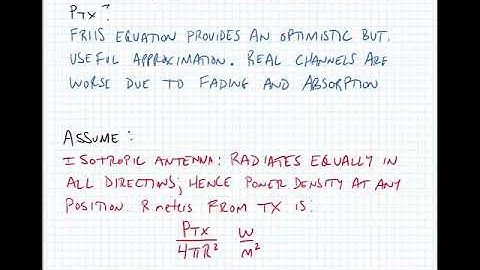 PTX?
FRIIS EQUATION PROVIDES AN OPTIMISTIC BUT
USEFUL APPROXIMATION. REAL CHANNELS ARE
WORSE DUE TO FADING AND ABSORPTION
ASSUME:
ISOTROPIC ANTENNA: RADIATES EQUALLY IN
ALL DIRECTIONS; HENCE POWER DENSITY AT ANY
POSITION R meters FROM TX IS:
PTX/4πR² W/m²